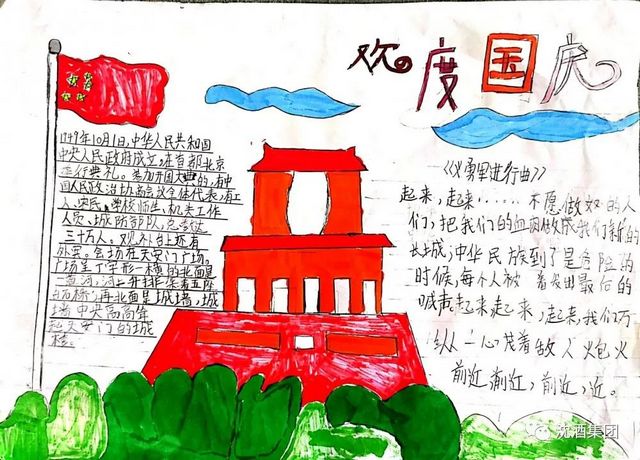 欢度国庆
1949年10月1日,中华人民共和国
中央人民政府成立,在首都北京
举行典礼。参加开国大典的,有中
国人民政治协商会议全体代表,有工
人、农民、学校师生、机关工作
人员、城防部队,总数达
三十万人。观礼台上还有
外宾。会场在天安门广场。
广场呈丁字形。
城墙
墙中央高高耸
天安门的城
楼。
《义勇军进行曲》
起来,起来……不愿做奴的人
们,把我们的血肉做成我们新的
长城;中华民族到了是危险的
时候,每个人被着发出最后的
喊声起来起来,起来,我们万
一心冒着敌人火包火
前近前近,前近,近。
沈酒集团